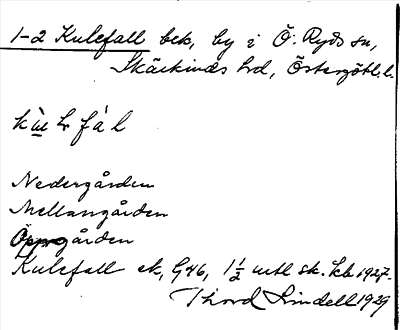 1-2 Kulefall bek, by i Ö. Ryds sn,
Skärkinds hd, Östergötl. l.
Nedergården
Mellangården
Öppgården
Kulefall ek, G46, 1 1/2 mtl sk. Jb 1927.
Thord Lindell 1929